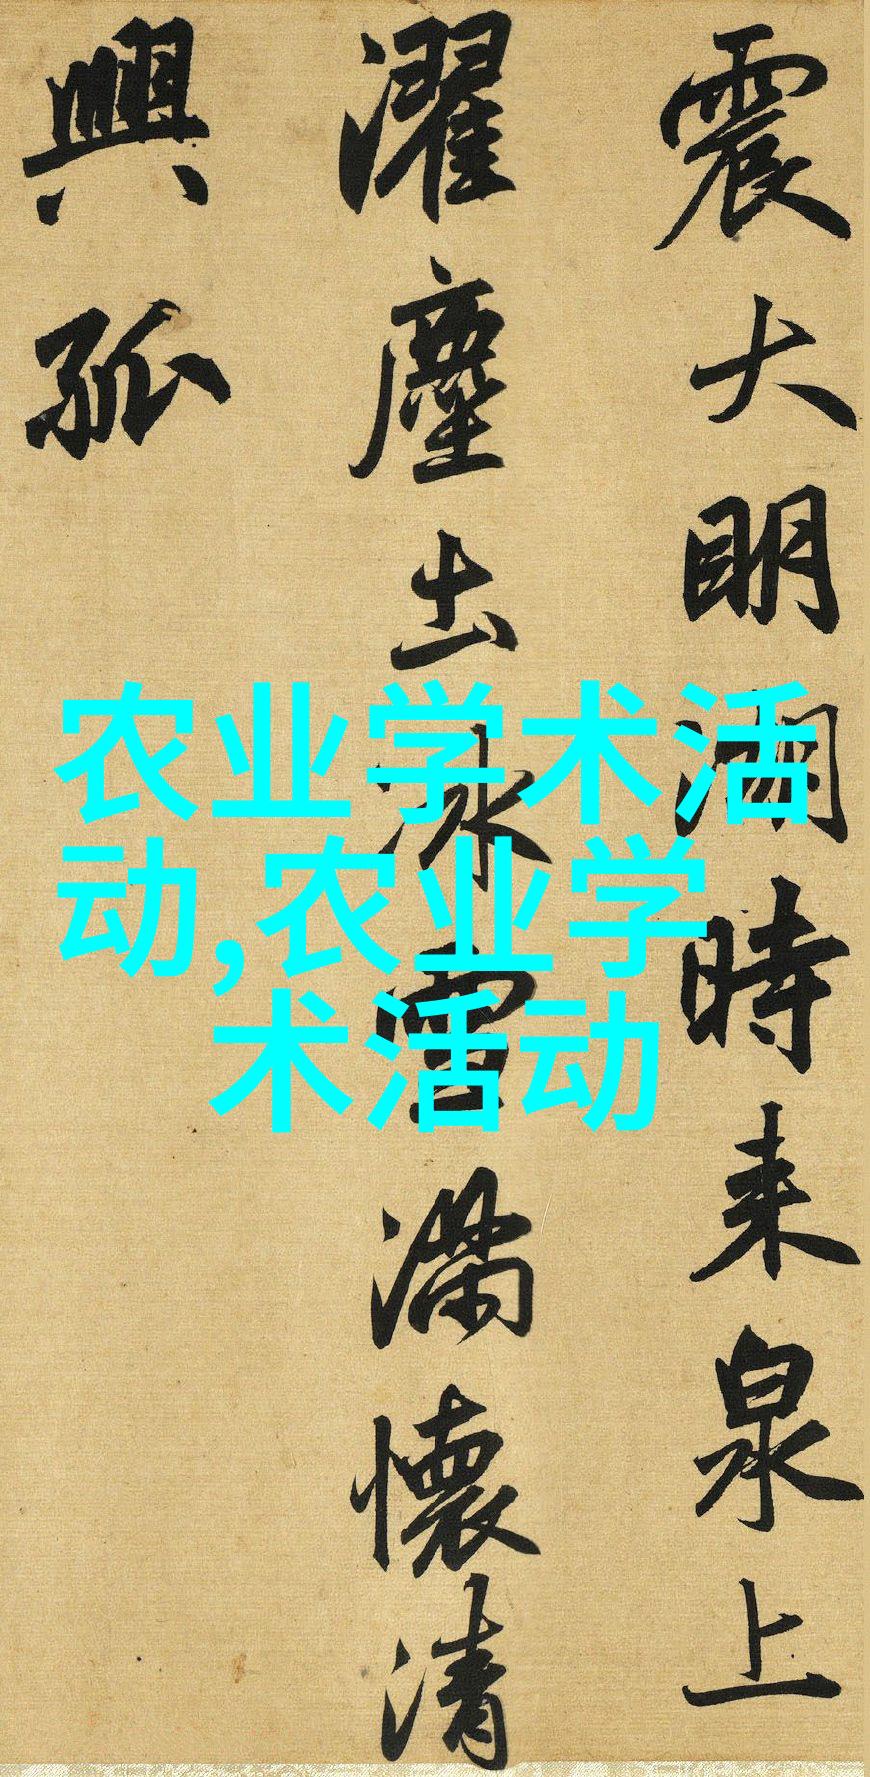 震大明湖時来泉上
濯塵土冰雪滿懷清
興孤
农业学术活
动,农业学
术活动